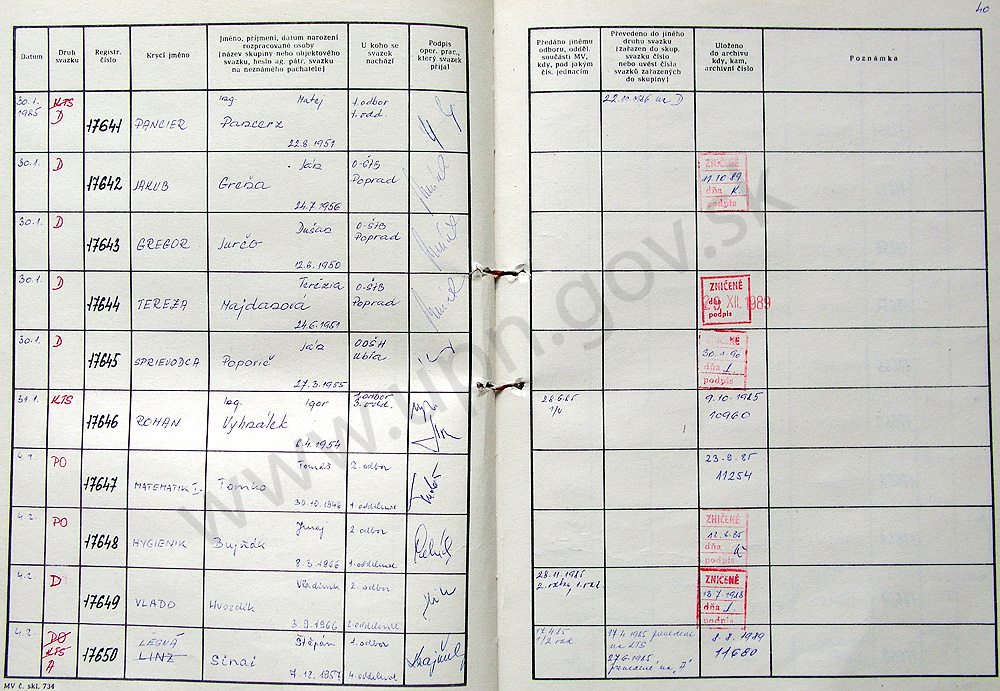 40
Datum
Druh svazku
Registr. číslo
Krycí jméno
Jméno, příjmení, datum narození rozpracované osoby (název skupiny nebo objektového svazku, heslo ag. pátr. svazku na neznámého pachatele)
U koho se svazek nachází
Podpis oper. prac., který svazek přijal
Předáno jinému odboru, odděl. součásti MV, kdy, pod jakým čís. jednacím
Převedeno do jiného druhu svazku (zařazen do skup. svazku číslo nebo uvést čísla svazků zařazených do skupiny)
Uloženo do archivu kdy, kam, archivní číslo
Poznámka
30.1. 1985 KTS D 17641 PANCIER Ing. Matej Pancerz 22.8.1951 1.odbor 1.odd. 22.11.1986 na D
30.1. D 17642 JAKUB Ján Greňa 24.7.1956 O-ŠtB Poprad ZNIČENÉ 11.10.89 dňa podpis
30.1. D 17643 GREGOR Dušan Jurčo 12.6.1950 O-ŠtB Poprad
30.1. D 17644 TEREZA Terézia Majdaszová 24.6.1951 O-ŠtB Poprad ZNIČENÉ dňa 29. XII. 1989 podpis
30.1. D 17645 SPRIEVODCA Ján Poporič 27.3.1955 OOŠH Ubľa 30.1.90 dňa podpis
31.1. KTS 17646 ROMAN Ing. Igor Vyhnálek 6.4.1954 1.odbor 3.odd. 9.10.1985 10960
4.2. PO 17647 MATEMATIK I. Tomáš Tomko 30.10.1946 2.odbor 1.oddelenie 23.9.85 11254
4.2. PO 17648 HYGIENIK Juraj Bujňák 8.3.1966 2.odbor 1.oddelenie ZNIČENÉ 12.6.85 dňa podpis
4.2. D 17649 VLADO Vladimír Hvozdík 3.9.1966 2.odbor 2.oddelenie 28.11.1985 ZNIČENÉ 18.7.1988 dňa podpis
4.2. PO KTS A 17650 LESNÁ LINZ Štěpán Sinai 7.12.1957 1.odbor 4.oddelenie 17.4.85 1/2 odd 17.4.1985 prevedené na KTS 27.6.1985 prevedené na "A" 8.8.1989 11680
MV č. skl. 734
www.upn.gov.sk